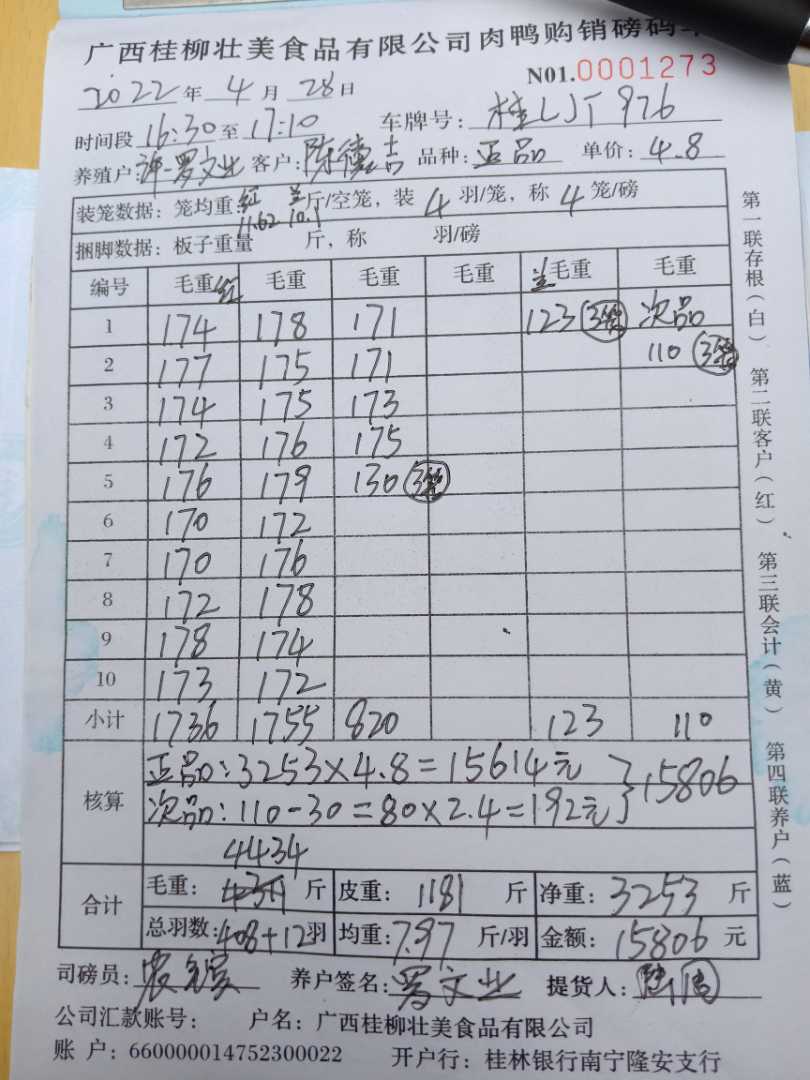 广西桂柳壮美食品有限公司肉鸭购销磅码单
N01.0001273
2022年4月28日
时间段 16:30至17:10 车牌号: 桂LJT976
养殖户: 罗文业 客户: 陈德吉 品种: 正品 单价: 4.8
装笼数据: 笼均重: 红 11.62 兰 10.1 斤/空笼, 装4羽/笼, 称4笼/磅
捆脚数据: 板子重量 斤, 称 羽/磅
编号 毛重红 毛重 毛重 毛重 兰毛重 毛重
1 174 178 171 123 (3笼) 次品
2 177 175 171 110 (3笼)
3 174 175 173
4 172 176 175
5 176 179 130 (3笼)
6 170 172
7 170 176
8 172 178
9 178 174
10 173 172
小计 1736 1755 820 123 110
核算 正品: 3253×4.8=15614元 }15806
次品: 110-30=80×2.4=192元
4434
合计 毛重: 斤 皮重: 1181 斤 净重: 3253 斤
总羽数: 408+12羽 均重: 7.97 斤/羽 金额: 15806 元
司磅员: 养户签名: 罗文业 提货人:
公司汇款账号: 户名: 广西桂柳壮美食品有限公司
账 户: 660000014752300022 开户行: 桂林银行南宁隆安支行
第一联存根(白) 第二联客户(红) 第三联会计(黄) 第四联养户(蓝)